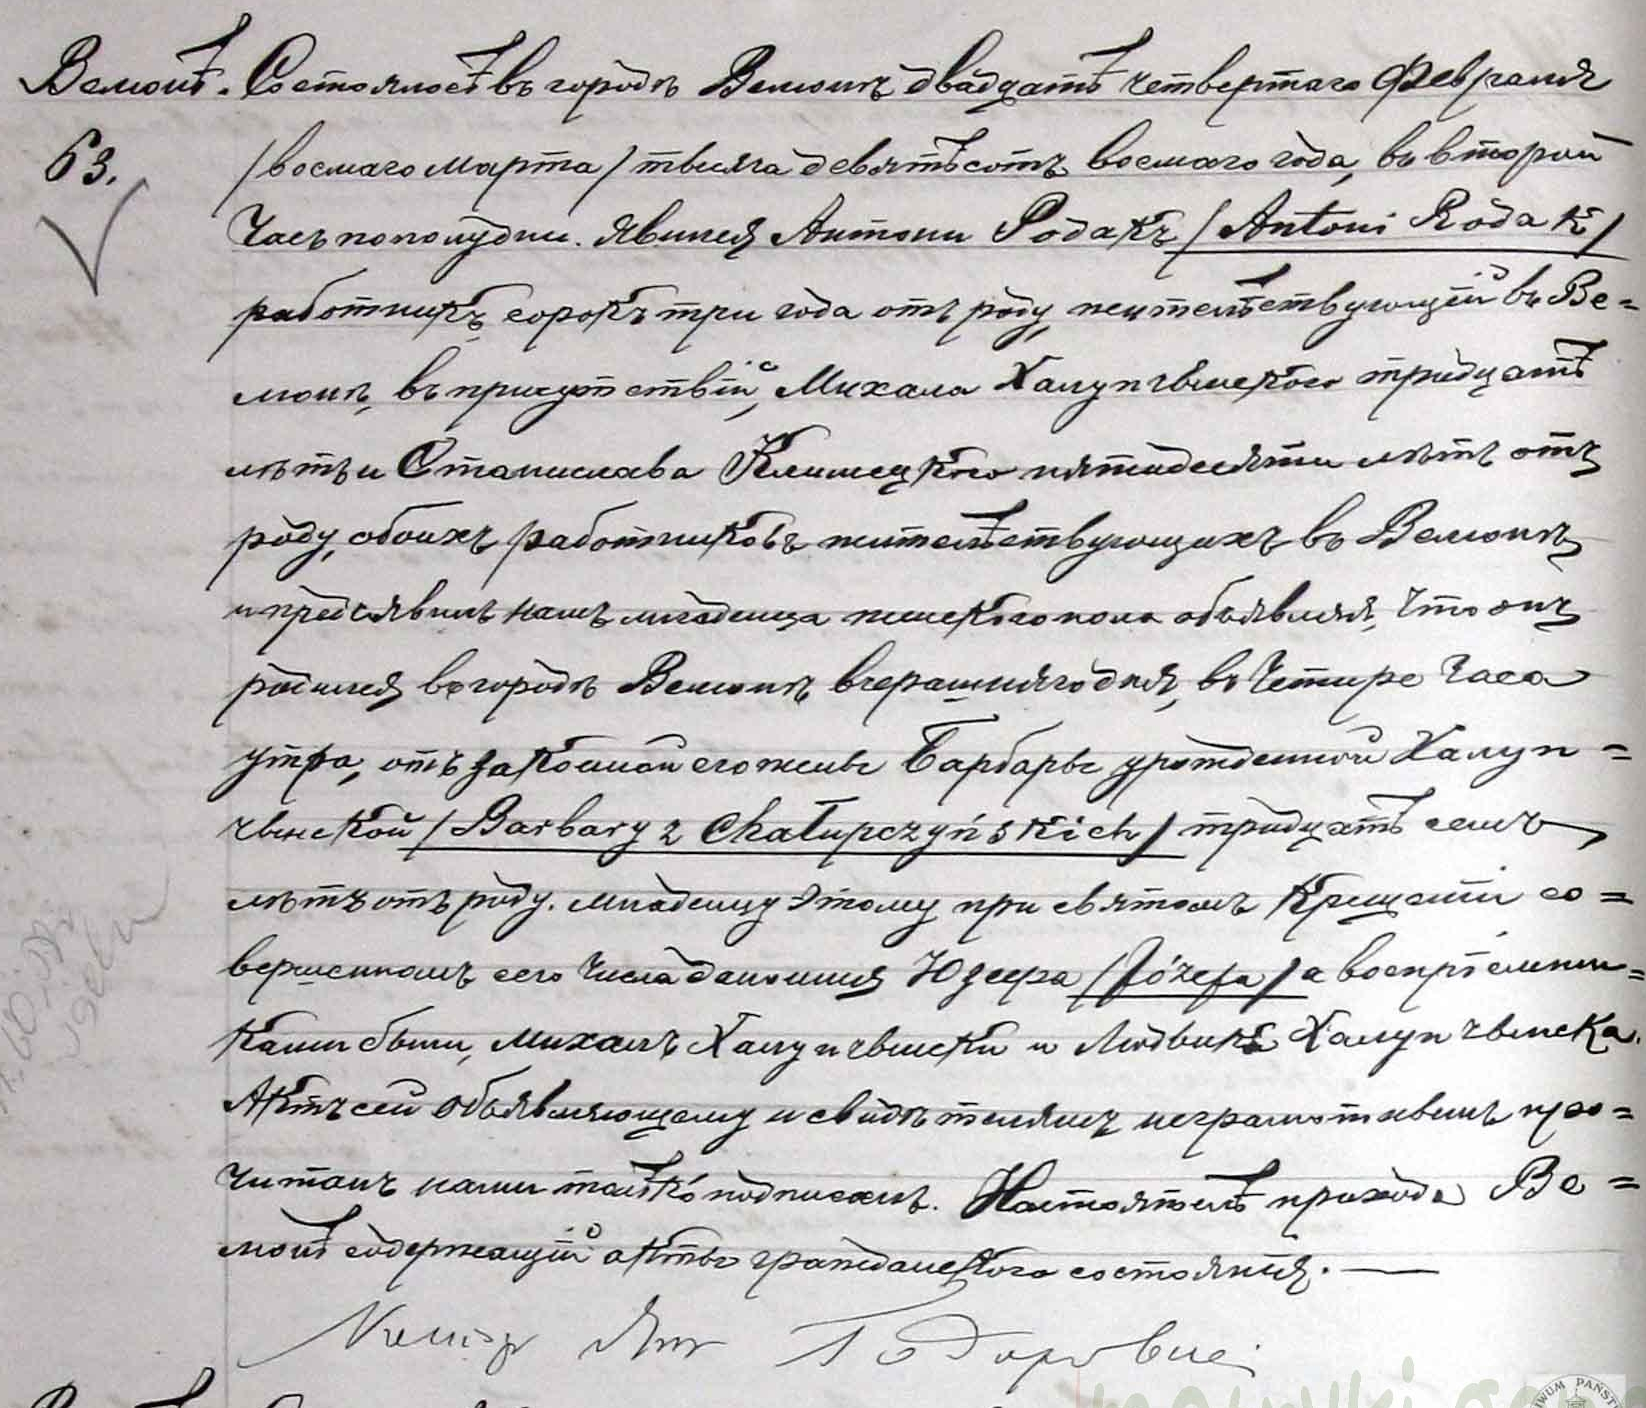 Велюнь. Состоялось въ городѣ Велюнѣ двадцать четвертаго Февраля
63. /восмаго Марта/ тысяча девятьсотъ восмаго года, въ второй
часъ пополудни. Явился Антони Родакъ /Antoni Rodak/
работникъ сорокъ три года отъ роду, жительствующій въ Ве=
люнѣ, въ присутствіи, Михала Халупчынскаго тридцать
лѣтъ и Станислава Климецкого пятидесяти лѣтъ отъ
роду, обоихъ работниковъ жительствующихъ въ Велюнѣ
и предъявилъ намъ младенца женскаго пола объявляя, что онъ
родился въ городѣ Велюнѣ вчерашнягодня, въ четыре часа
утра, отъ законной его жены Барбары урожденной Халуп=
чынской /Barbary z Chałupczyńskich/ тридцать семь
лѣтъ отъ роду. Младенцу этому при святомъ крещеніи со=
вершенномъ сего числа дано имя Юзефа /Józefa/ а воспріемни=
ками были, Михалъ Халупчынски и Людвика Халупчынска.
Актъ сей объявляющему и свидѣтелямъ неграмотнымъ про=
читанъ нами только подписанъ. Настоятель прихода Ве=
люнь содержащій акты гражданскаго состоянія.
Ксендзъ Янъ